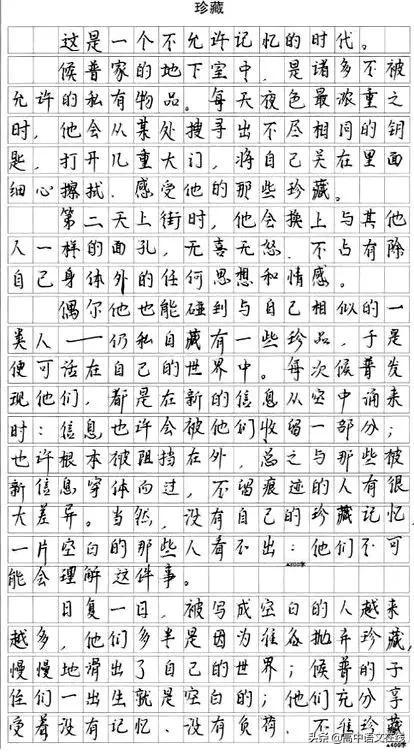 珍藏
这是一个不允许记忆的时代。
候普家的地下室中，是诸多不被
允许的私有物品。每天夜色最浓重之
时，他会从某处搜寻出不尽相同的钥
匙，打开几重大门，将自己关在里面
细心擦拭、感受他的那些珍藏。
第二天上街时，他会换上与其他
人一样的面孔，无喜无怒，不占有除
自己身体外的任何思想和情感。
偶尔他也能碰到与自己相似的一
类人——仍私自藏有一些珍品，于是
便可活在自己的世界中。每次候普发
现他们，都是在新的信息从空中涌来
时：信息也许会被他们收留一部分；
也许根本被阻挡在外，总之与那些被
新信息穿体而过，不留痕迹的人有很
大差异。当然，没有自己的珍藏记忆，
一片空白的那些人看不出：他们不可
能会理解这件事。
日复一日，被写成空白的人越来
越多，他们多半是因为准备抛弃珍藏，
慢慢地滑出了自己的世界；候普的子
侄们一出生就是空白的；他们充分享
受着没有记忆、没有负荷、不准珍藏
头条@高中语文在线